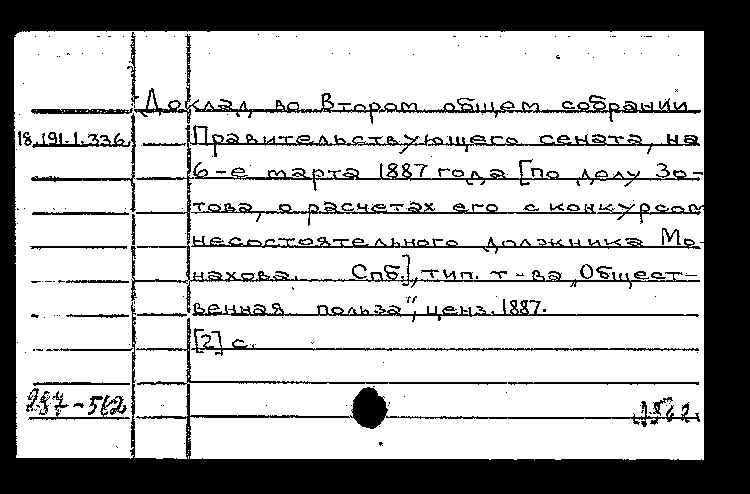 Доклад во Втором общем собрании
18.191.1.336. Правительствующего сената, на
6-е марта 1887 года [по делу Зо-
това, о расчетах его с конкурсом
несостоятельного должника Мо-
нахова. Спб.], тип. т-ва „Общест-
венная польза“, ценз. 1887.
[2] с.
287-562